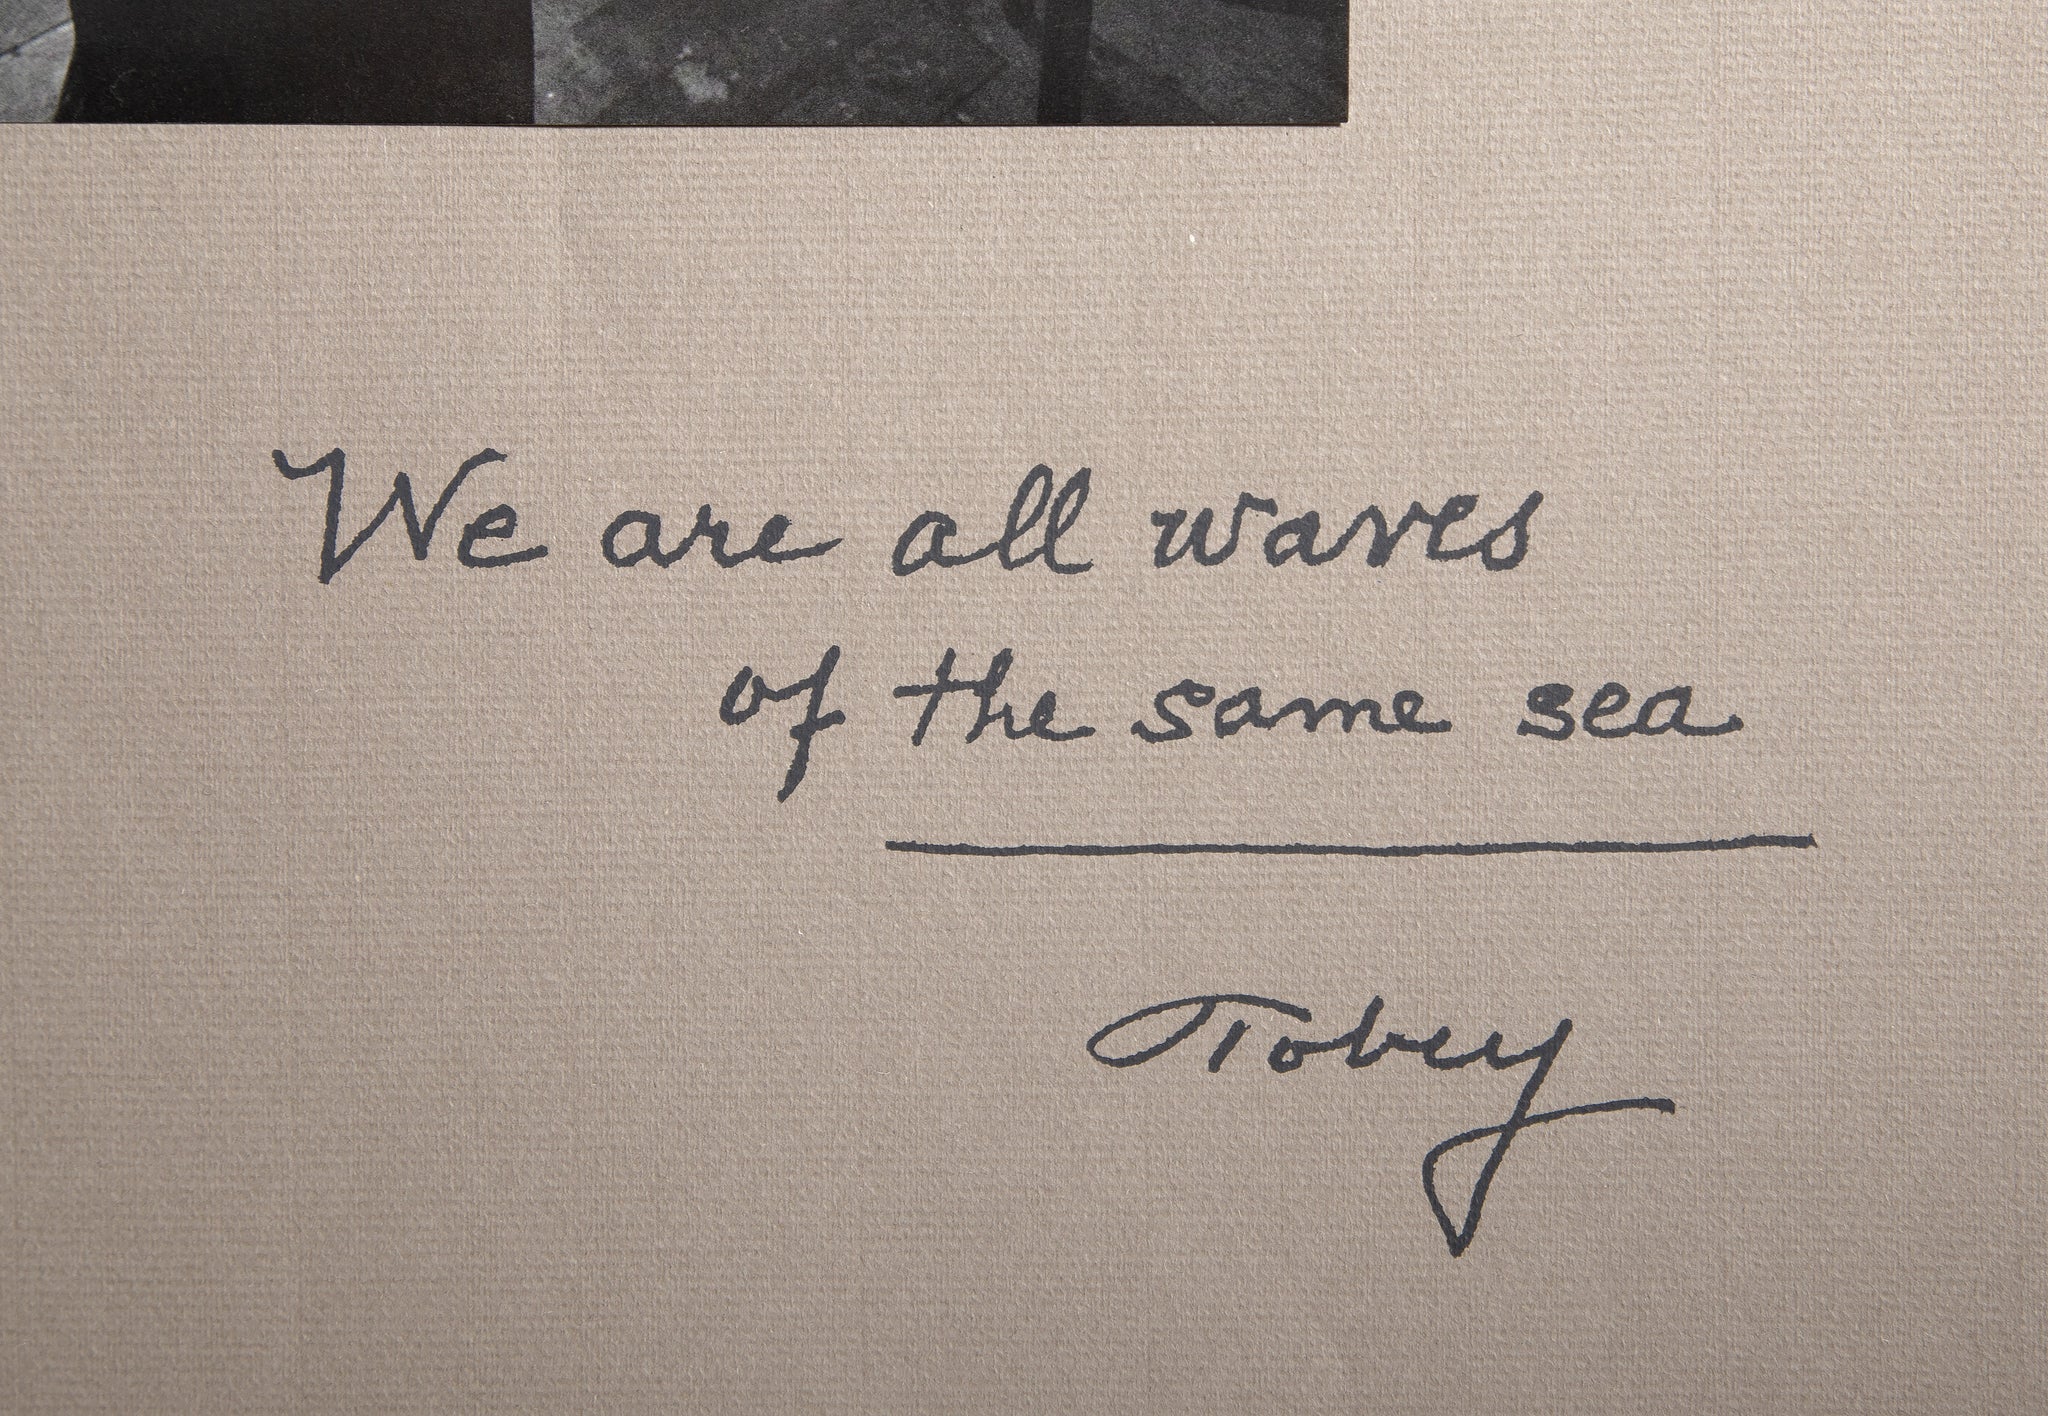 We are all waves
of the same sea
Tobey